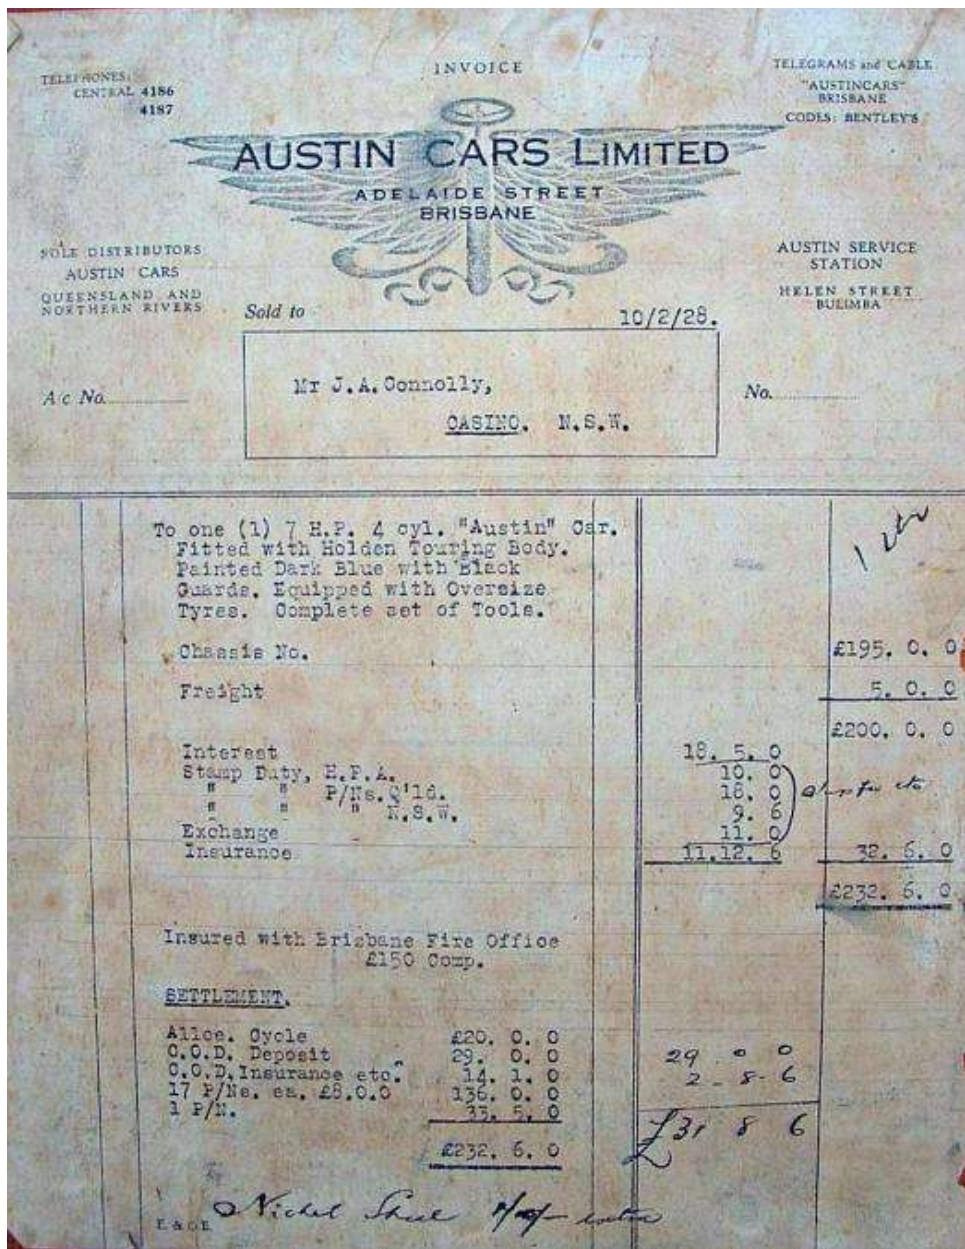 INVOICE
TELEPHONES:
CENTRAL 4186
4187
TELEGRAMS and CABLE
"AUSTINCARS"
BRISBANE
CODES: BENTLEY'S
AUSTIN CARS LIMITED
ADELAIDE STREET
BRISBANE
SOLE DISTRIBUTORS
AUSTIN CARS
QUEENSLAND AND
NORTHERN RIVERS
AUSTIN SERVICE
STATION
HELEN STREET
BULIMBA
Sold to
10/2/28.
Mr J.A.Connolly,
CASINO. N.S.W.
A/c No.
No.
To one (1) 7 H.P. 4 cyl. "Austin" Car.
Fitted with Holden Touring Body.
Painted Dark Blue with Black
Guards. Equipped with Oversize
Tyres. Complete set of Tools.
Chassis No. £195. 0. 0
Freight 5. 0. 0
£200. 0. 0
Interest 18. 5. 0
Stamp Duty, H.P.A. 10. 0
" " P/Ns.Q'ld. 18. 0
" " " N.S.W. 9. 6
Exchange 11. 0
Insurance 11.12. 6 32. 6. 0
£232. 6. 0
Insured with Brisbane Fire Office
£150 Comp.
SETTLEMENT.
Allce. Cycle £20. 0. 0
C.O.D. Deposit 29. 0. 0 29 0 0
C.O.D.Insurance etc. 14. 1. 0 2 - 8 - 6
17 P/Ns. ea. £8.0.0 136. 0. 0
1 P/N. 33. 5. 0 £31 8 6
£232. 6. 0
E & O E Nickel